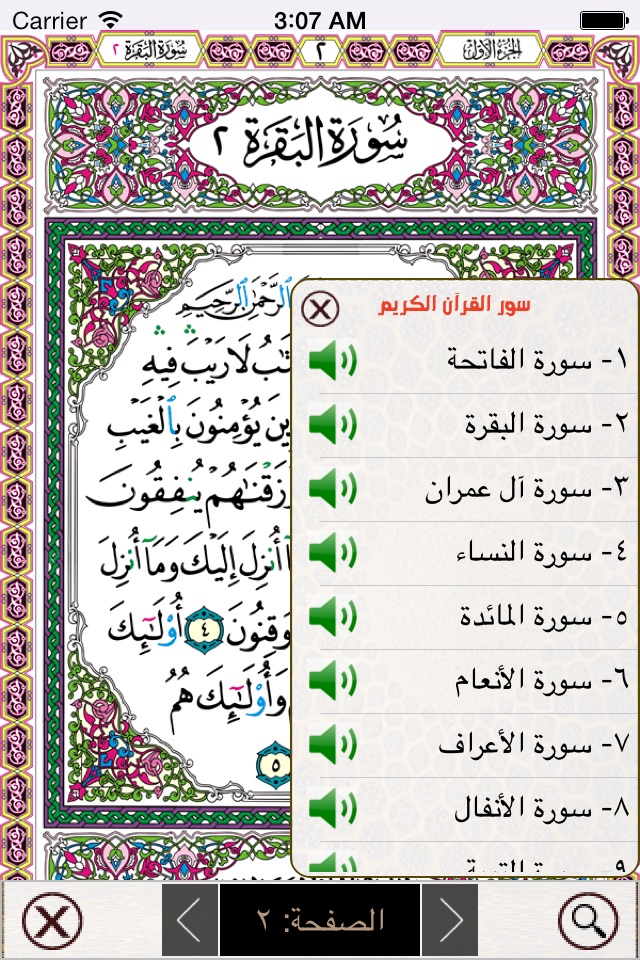 Carrier 3:07 AM
الجزء الأول
٢
سورة البقرة ٢
سورة البقرة ٢
الرحمن الرحيم
لَا رَيْبَ فِيهِ
يُؤْمِنُونَ بِٱلْغَيْبِ
يُنفِقُونَ
أُنزِلَ إِلَيْكَ وَمَآ أُنزِلَ
٤ أُو۟لَـٰٓئِكَ
وَأُو۟لَـٰٓئِكَ هُمُ
٥
سور القرآن الكريم
١- سورة الفاتحة
٢- سورة البقرة
٣- سورة آل عمران
٤- سورة النساء
٥- سورة المائدة
٦- سورة الأنعام
٧- سورة الأعراف
٨- سورة الأنفال
الصفحة: ٢